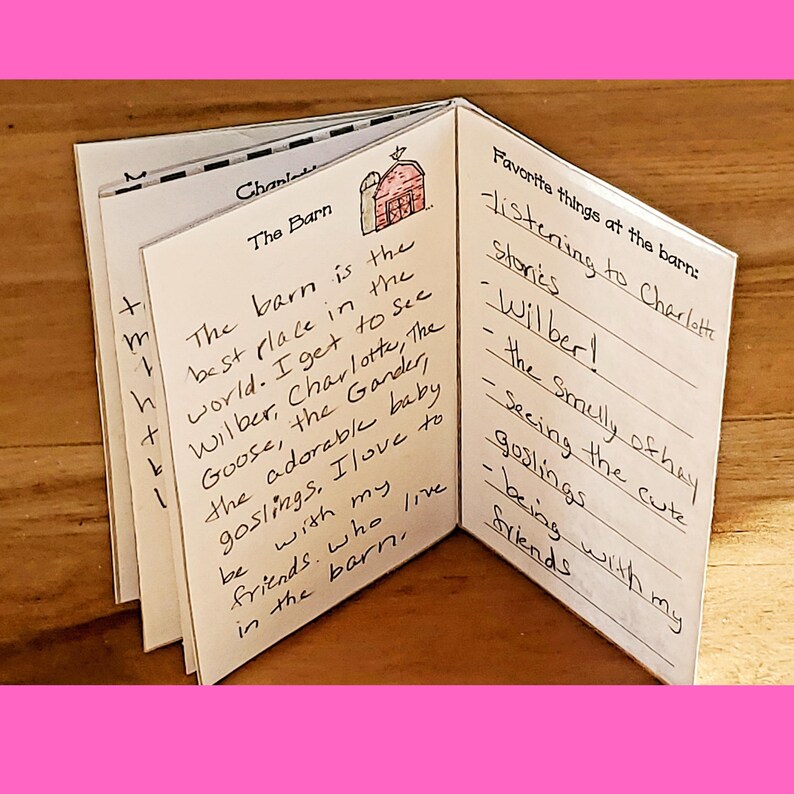 Charlott
The Barn
The barn is the
best place in the
world. I get to see
Wilber, Charlotte, The
Goose, the Gander,
the adorable baby
goslings. I love to
be with my
friends who live
in the barn.
Favorite things at the barn:
-Listening to Charlotte
stories
- Wilber!
- the smelly of hay
- seeing the cute
goslings
- being with my
friends